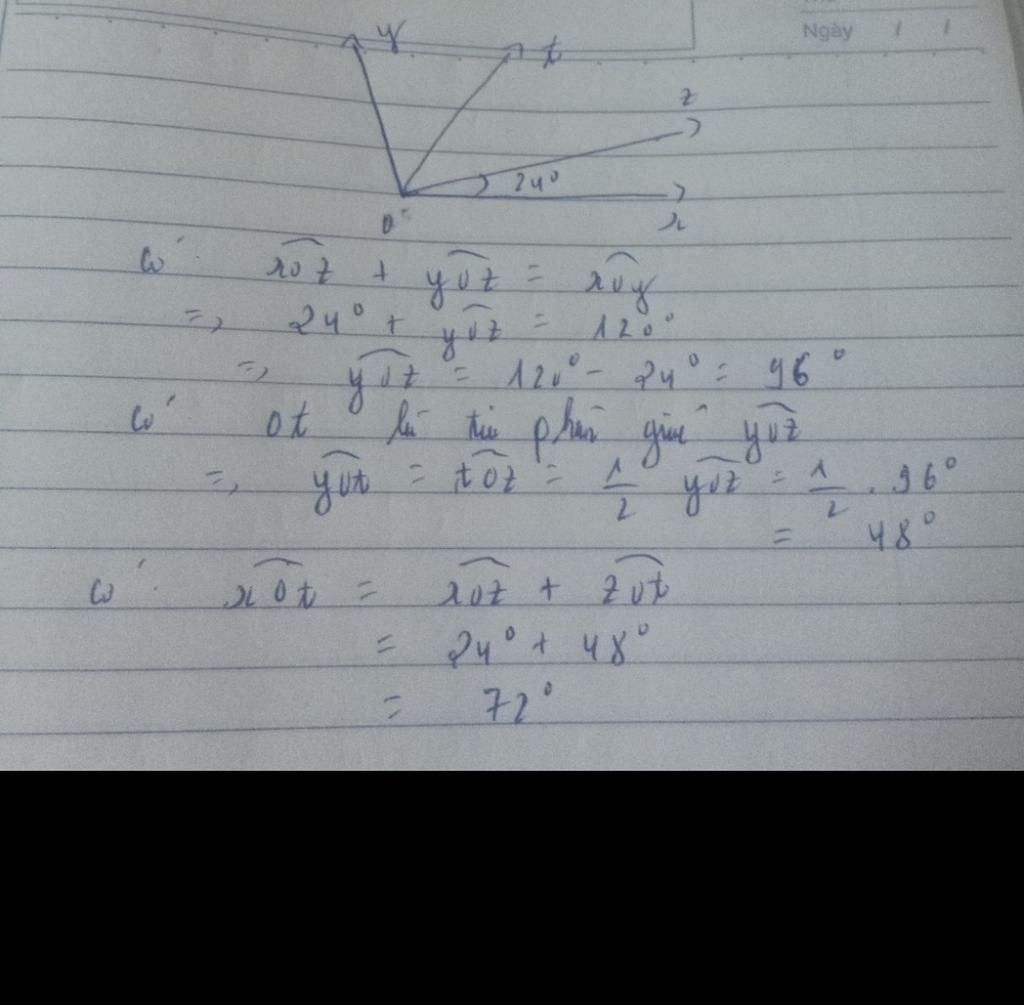 Ngày / /
y
t
z
24°
O
x
Có: xOz + yOz = xOy
=> 24° + yOz = 120°
=> yOz = 120° - 24° = 96°
Có Ot là tia phân giác yOz
=> yOt = tOz = 1/2 yOz = 1/2 . 96°
= 48°
Có: xOt = xOz + zOt
= 24° + 48°
= 72°